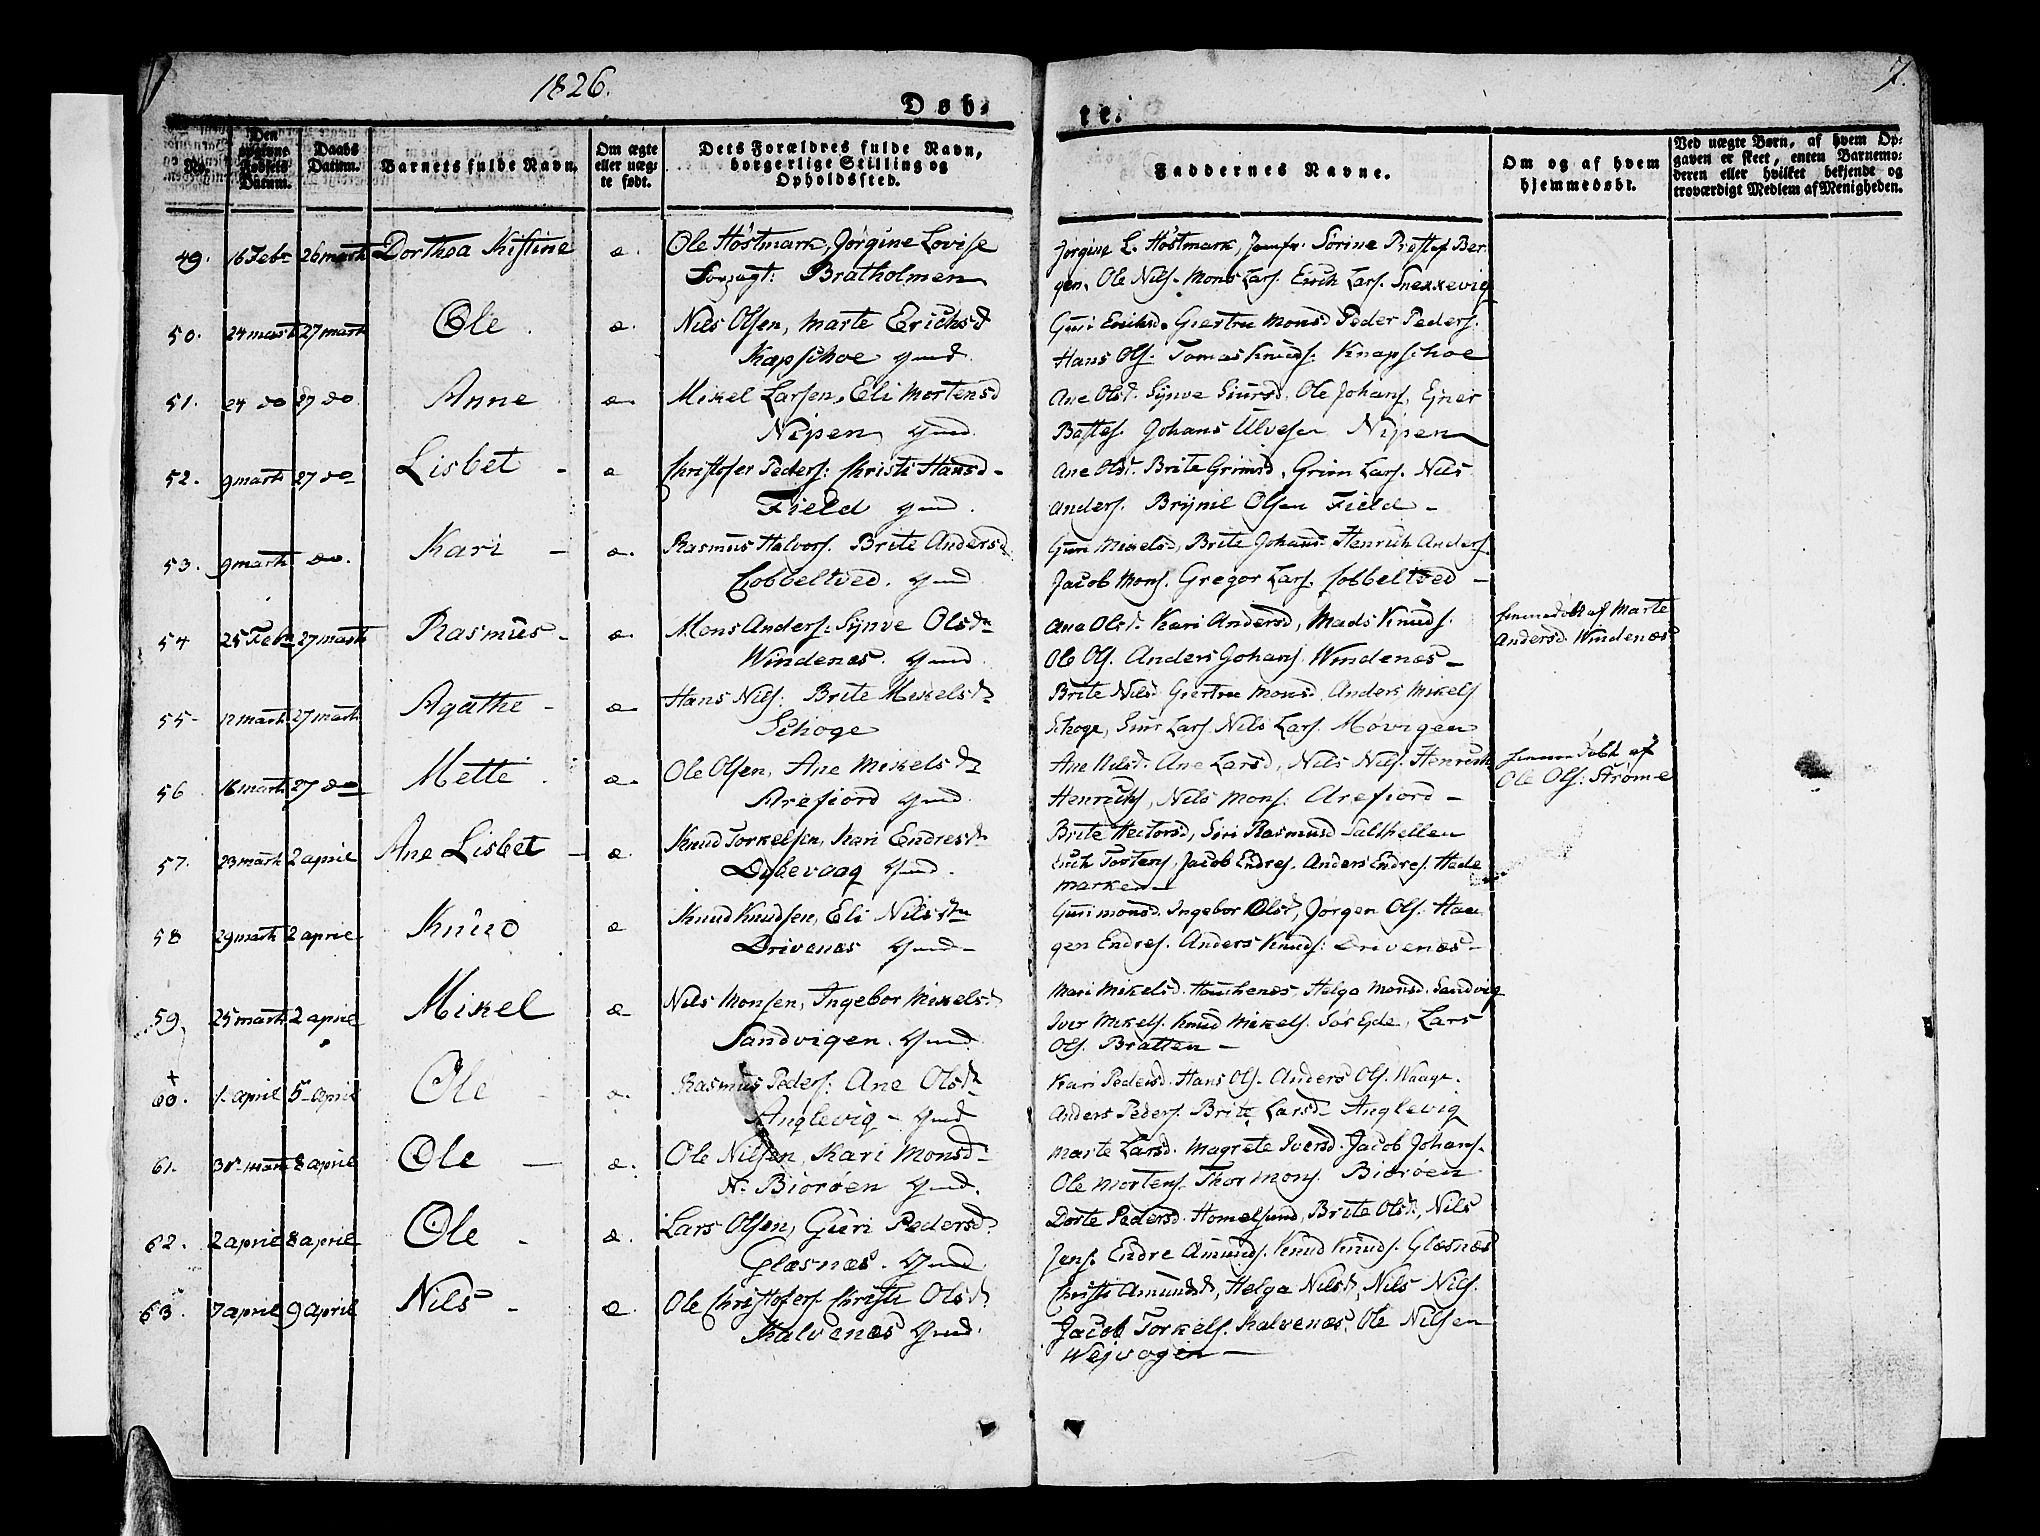 1826.
Døb-
te.
7.
No.
Den
Fødsels
Datum.
Daabs
Datum.
Barnets fulde Navn.
Om ægte
eller uæg-
te født.
Dets Forældres fulde Navn,
borgerlige Stilling og
Opholdssted.
Faddernes Navne.
Om og af hvem
hjemmedøbt.
Ved uægte Børn, af hvem Op-
gaven er skeet, enten Barnemo-
deren eller hvilket bekjendt og
troværdigt Medlem af Menigheden.
49. 16 Febr 26 marti Dorthea Kistine æ. Ole Høstmark, Jørgine Lovise
Bratholmen
Jørgine L. Høstmark, Jomfr. Sørine Ber
gen, Ole Nils. Mons Lars. Erich Lars. Snekkevig
50. 24 marti 27 marti Ole æ. Nils Olsen, Marte Erichsd
Kapschoe Gmd.
Guri Erichsd. Giertru Monsd Peder Peders.
Hans Ols. Tomas Knuds. Knapschoe
51. 24 do 27 do Anne æ. Mikel Larsen, Eli Mortensd
Nipen Gmd.
Ane Olsd. Synve Siursd. Ole Johans. Ejner
Bastes. Johans Ulvesen Nipen
52. 9 marti 27 do Lisbet - æ Christofer Peders: Christi Hansd -
Field Gmd.
Ane Olsd. Brite Grimsd. Grim Lars. Nils
Anders. Brynil Olsen Field -
53. 9 marti do. Kari - æ. Rasmus Halvors. Brite Andersd
Cobbeltved. Gmd
Guri Mikelsd, Brite Johansd Henrich Anders.
Jacob Mons. Gregor Lars. Cobbeltved -
54 25 Febr 27 marti Rasmus - æ. Mons Anders: Synve Olsdr
Windenæs. Gmd
Ane Olsd. Kari Andersd, Mads Knuds.
Ole Ols. Anders Johans. Windenæs -
hiemmedøbt af Marte
Andersd. Windenæs
55 - 12 marti 27 marti Agathe - æ Hans Nils: Brite Mikelsdr
Schoge
Brite Nilsd Giertru Monsd. Anders Mikels
Schoge, Siur Lars. Nils Lars. Møvigen
56 16 marti 27 do Mette. æ. Ole Olsen, Ane Mikelsdr
Arefiord Gmd.
Ane Nilsd. Ane Larsd, Nils Nils. Henrich
Henrichs, Nils Mons: Arefiord -
hiemmedøbt af
Ole Ols: Strøme
57. 23 marti 2 april Ane Lisbet - æ. Knud Torkelsen, Kari Endresdr
Dybevaag Gmd.
Brite Hectorsd, Siri Rasmusd Salthellen
Erich Tostens, Jacob Endres. Anders Endres. Hede
marken -
58 29 marti 2 april Knud æ Knud Knudsen, Eli Nilsdr
Drivenæs Gmd -
Guri Monsd. Ingebor Olsd, Jørgen Ols. Haa
gen Endres. Anders Knuds: Drivenæs -
59. 25 marti 2 april Mikel æ Nils Monsen, Ingebor Mikelsd.
Sandvigen. Gmd.
Mari Mikelsd. Houchenæs, Helga Monsd. Sandvig
Iver Mikels. Knud Mikels. Sør Eide, Lars
Ols. Bratten -
+
60. 1. april 5 april Ole - æ. Rasmus Peders: Ane Olsdr
Anglevig - Gmd
Kari Pedersd. Hans Ols. Anders Ols. Waage.
Anders Peders. Brite Larsd. Anglevig
61. 30 marti 8 april Ole - æ. Ole Nilsen, Kari Monsd -
N. Biorøen Gmd.
Marte Larsd. Magrete Iversd. Jacob Johans.
Ole Mortens. Thor Mons. Biorøen
62. 2 april 8 april Ole - æ. Lars Olsen, Guri Pedersd.
Glæsnæs. Gmd
Dorte Pedersd. Homelsund, Brite Olsd, Nils
Jens. Endre Amunds. Knud Knuds. Glæsnæs
63. 7 april 9 april Nils - æ. Ole Christofers. Christi Olsd.
Kalvenæs Gmd.
Christi Amundsd, Helga Nilsd, Nils Nils.
Jacob Torkels. Kalvenæs, Ole Nilsen
Wejvogen -